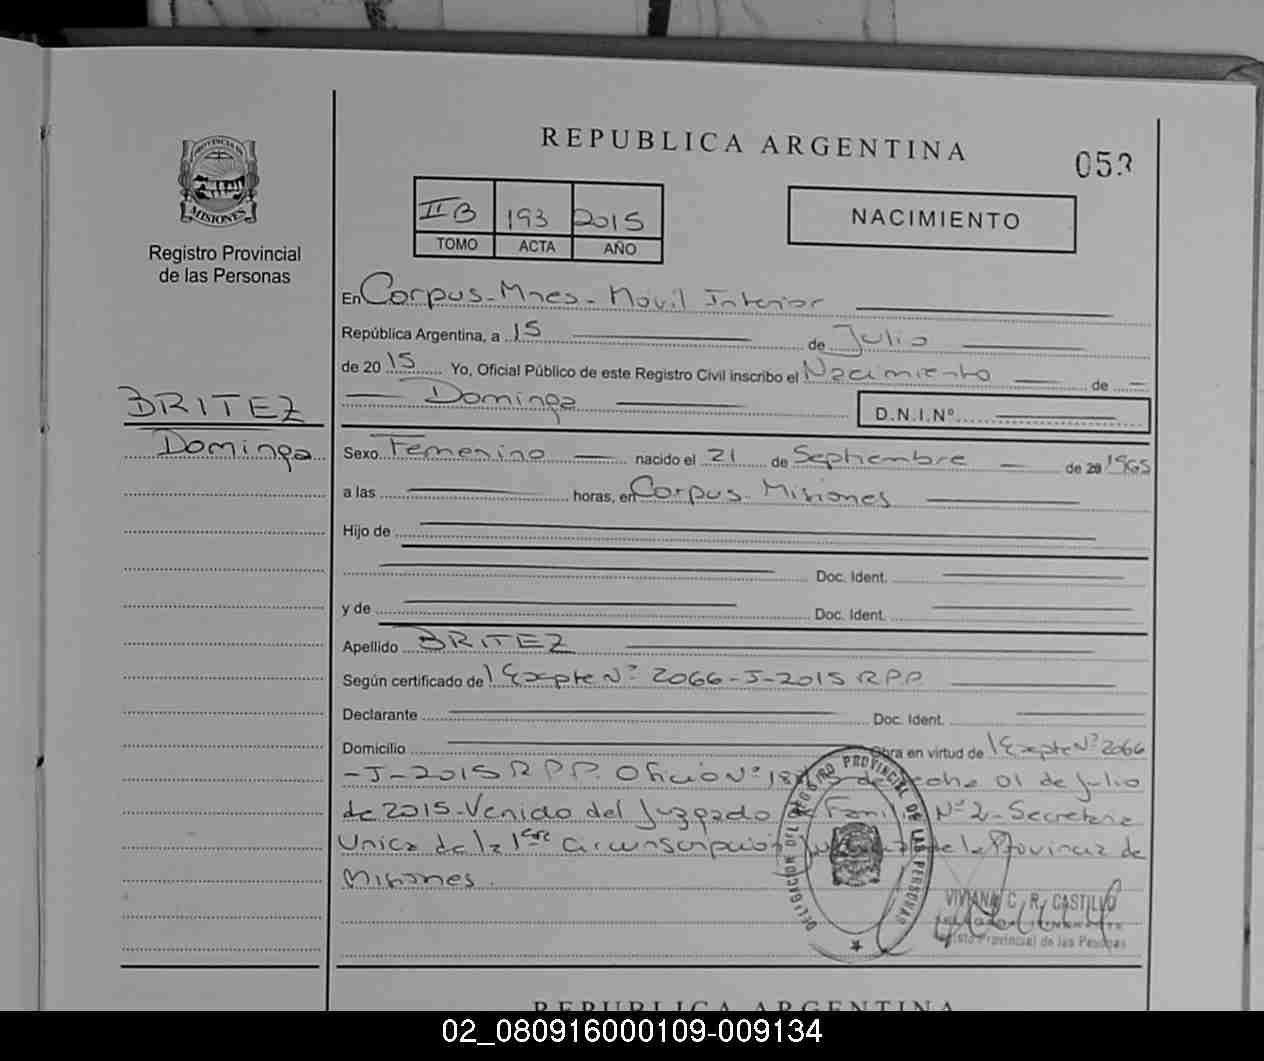 REPUBLICA ARGENTINA
053
PROVINCIA DE
MISIONES
Registro Provincial
de las Personas
II B 193 2015
TOMO ACTA AÑO
NACIMIENTO
En Corpus - Mnes - Móvil Interior
República Argentina, a 15 de Julio
de 2015 Yo, Oficial Público de este Registro Civil inscribo el Nacimiento de
Dominga D.N.I.Nº
BRITEZ
Dominga
Sexo Femenino nacido el 21 de Septiembre de 20 1965
a las horas, en Corpus - Misiones
Hijo de
Doc. Ident.
y de Doc. Ident.
Apellido BRITEZ
Según certificado de Expte Nº 2066-J-2015 R.P.P.
Declarante Doc. Ident.
Domicilio Obra en virtud de Expte Nº 2066
-J-2015 R.P.P. Oficio Nº de fecha 01 de Julio
de 2015 - Venido del Juzgado de Familia Nº 2 - Secretaria
Unica de la 1era Circunscripción de la Provincia de
Misiones.
DELEGACION DEL REGISTRO PROVINCIAL DE LAS PERSONAS
VIVIANA C. R. CASTILLO
Registro Provincial de las Personas
REPUBLICA ARGENTINA
02_080916000109-009134